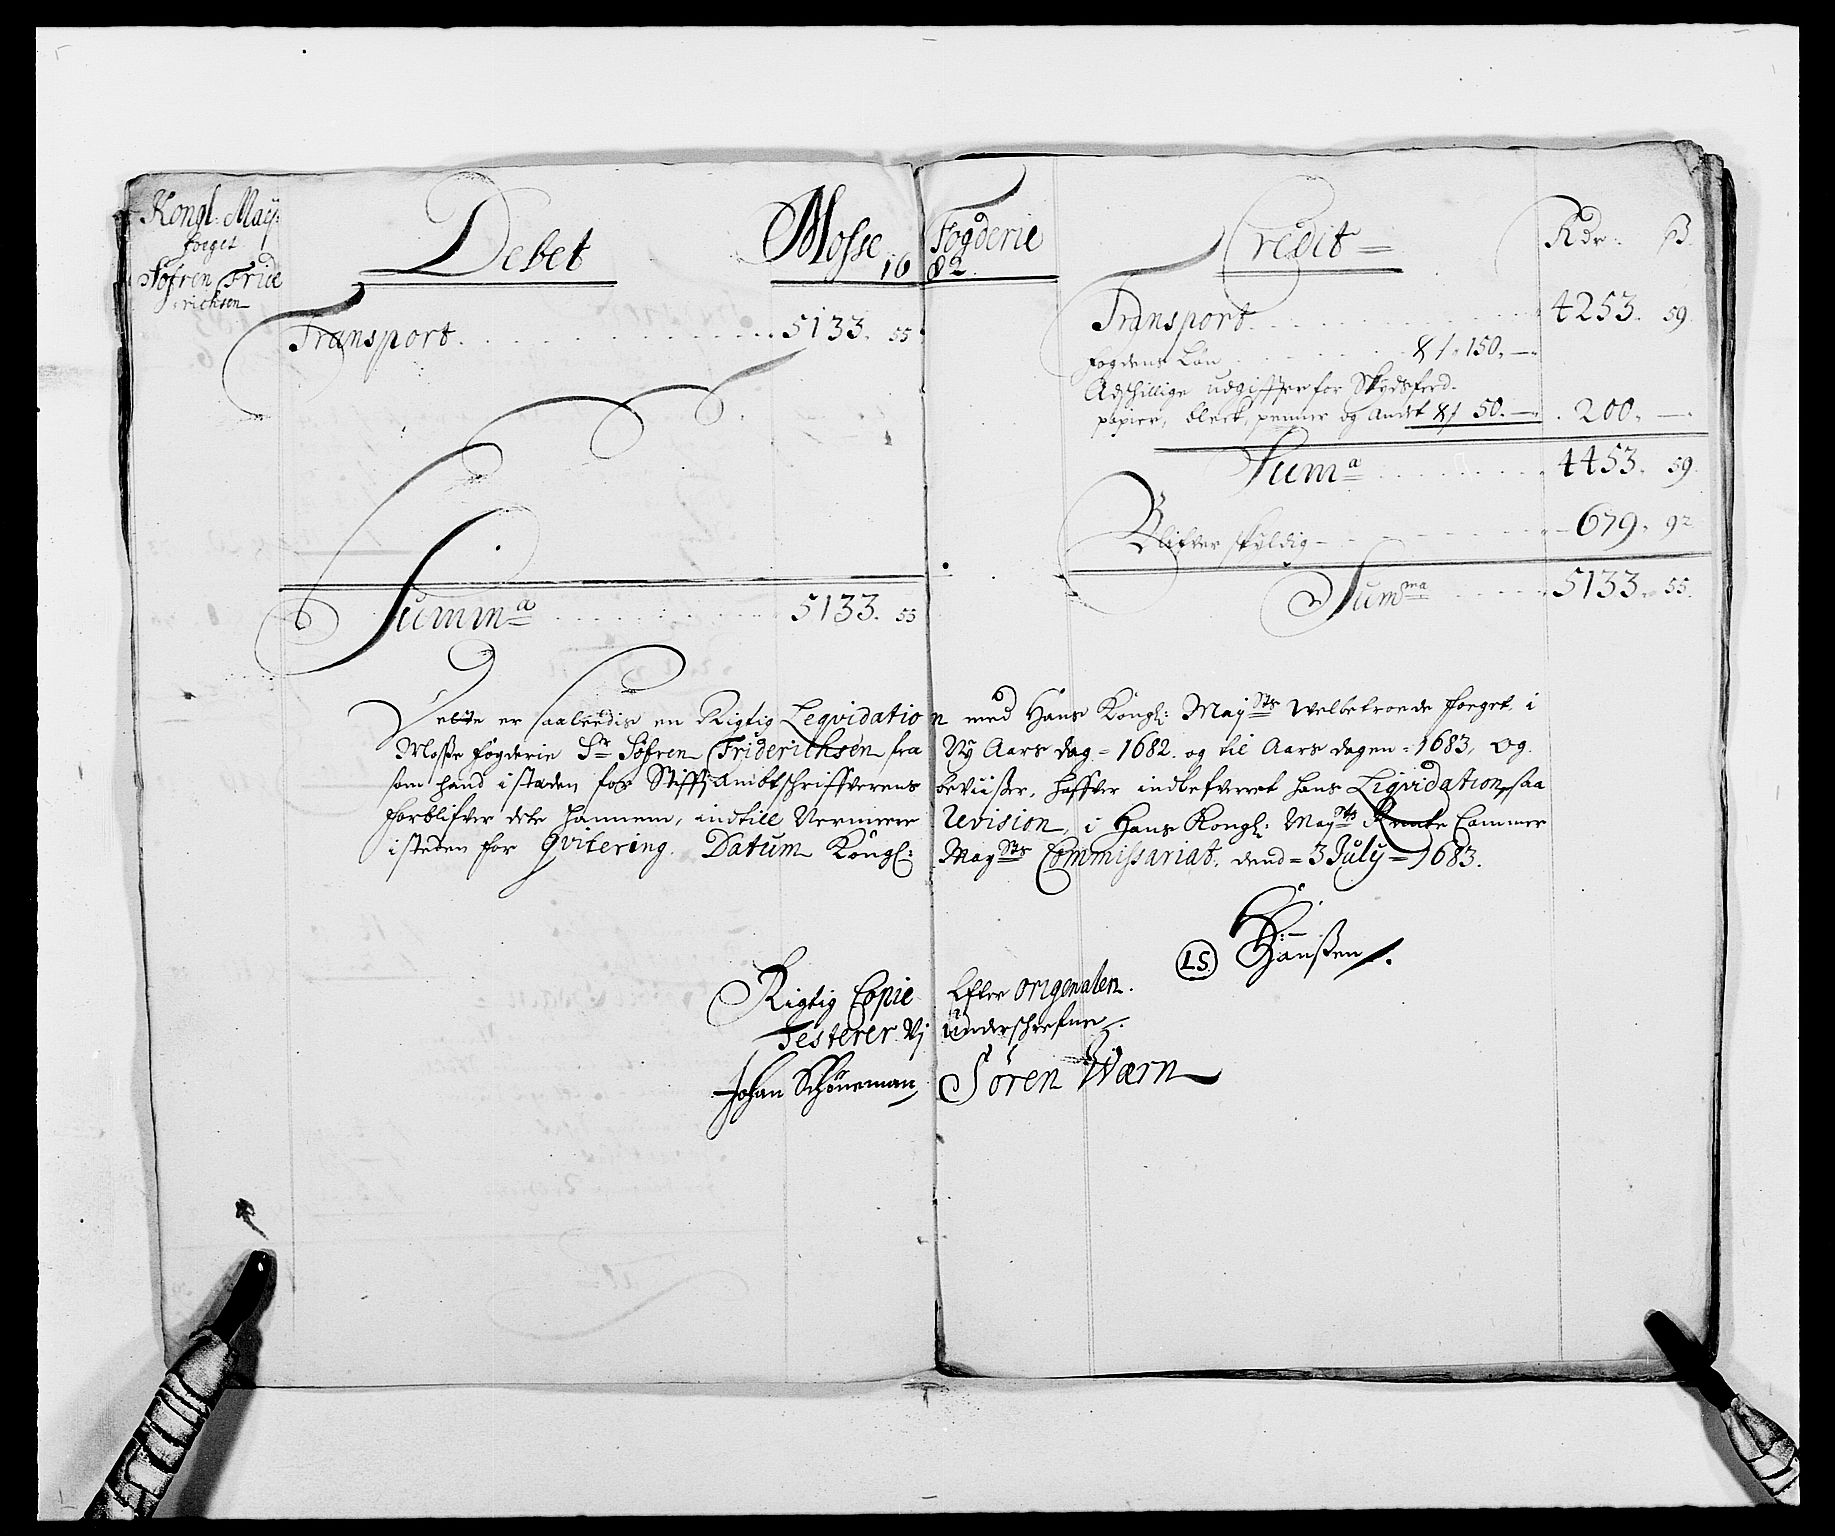 Kongl: May:
foget
Søfren Fride
richsen
Debet
Mosse Fogderie
1682
Credit
Rdr: ß
Transport 5133. 55
Transport 4253. 59
fogdens Løn 150. —
Adschillige udgiffter for Skydsferd.
papier, bleck, penner og Andet 50. — 200. —
Sum a 4453. 59
Blifver skyldig 679. 92
Summa 5133. 55
Sum ma 5133. 55
Dette er saaledis en Rigtig Leqvidation med Hans Kongl: May Sts Welbetroede foeget i
Mosse fogderie Sr Søfren Friderichsen fra Ny Aars dag = 1682. og til Aars dagen = 1683, Og
som hand i staden for Stiffts Ambtschriffverens beviisser, haffver indlefverret hans Liqvidation, saa
forblifver dete hannem, indtill Nermere Revision, i Hans Kongl: May sts Rente Cammer
isteden for Qvitering. Datum Kongl: May sts Commissariat, dend = 3 July = 1683.
LS. Hanssen
Rigtig Copie Efter origenalen.
Testerer Vj underschrefne
Johan Schöneman Søren Wærn